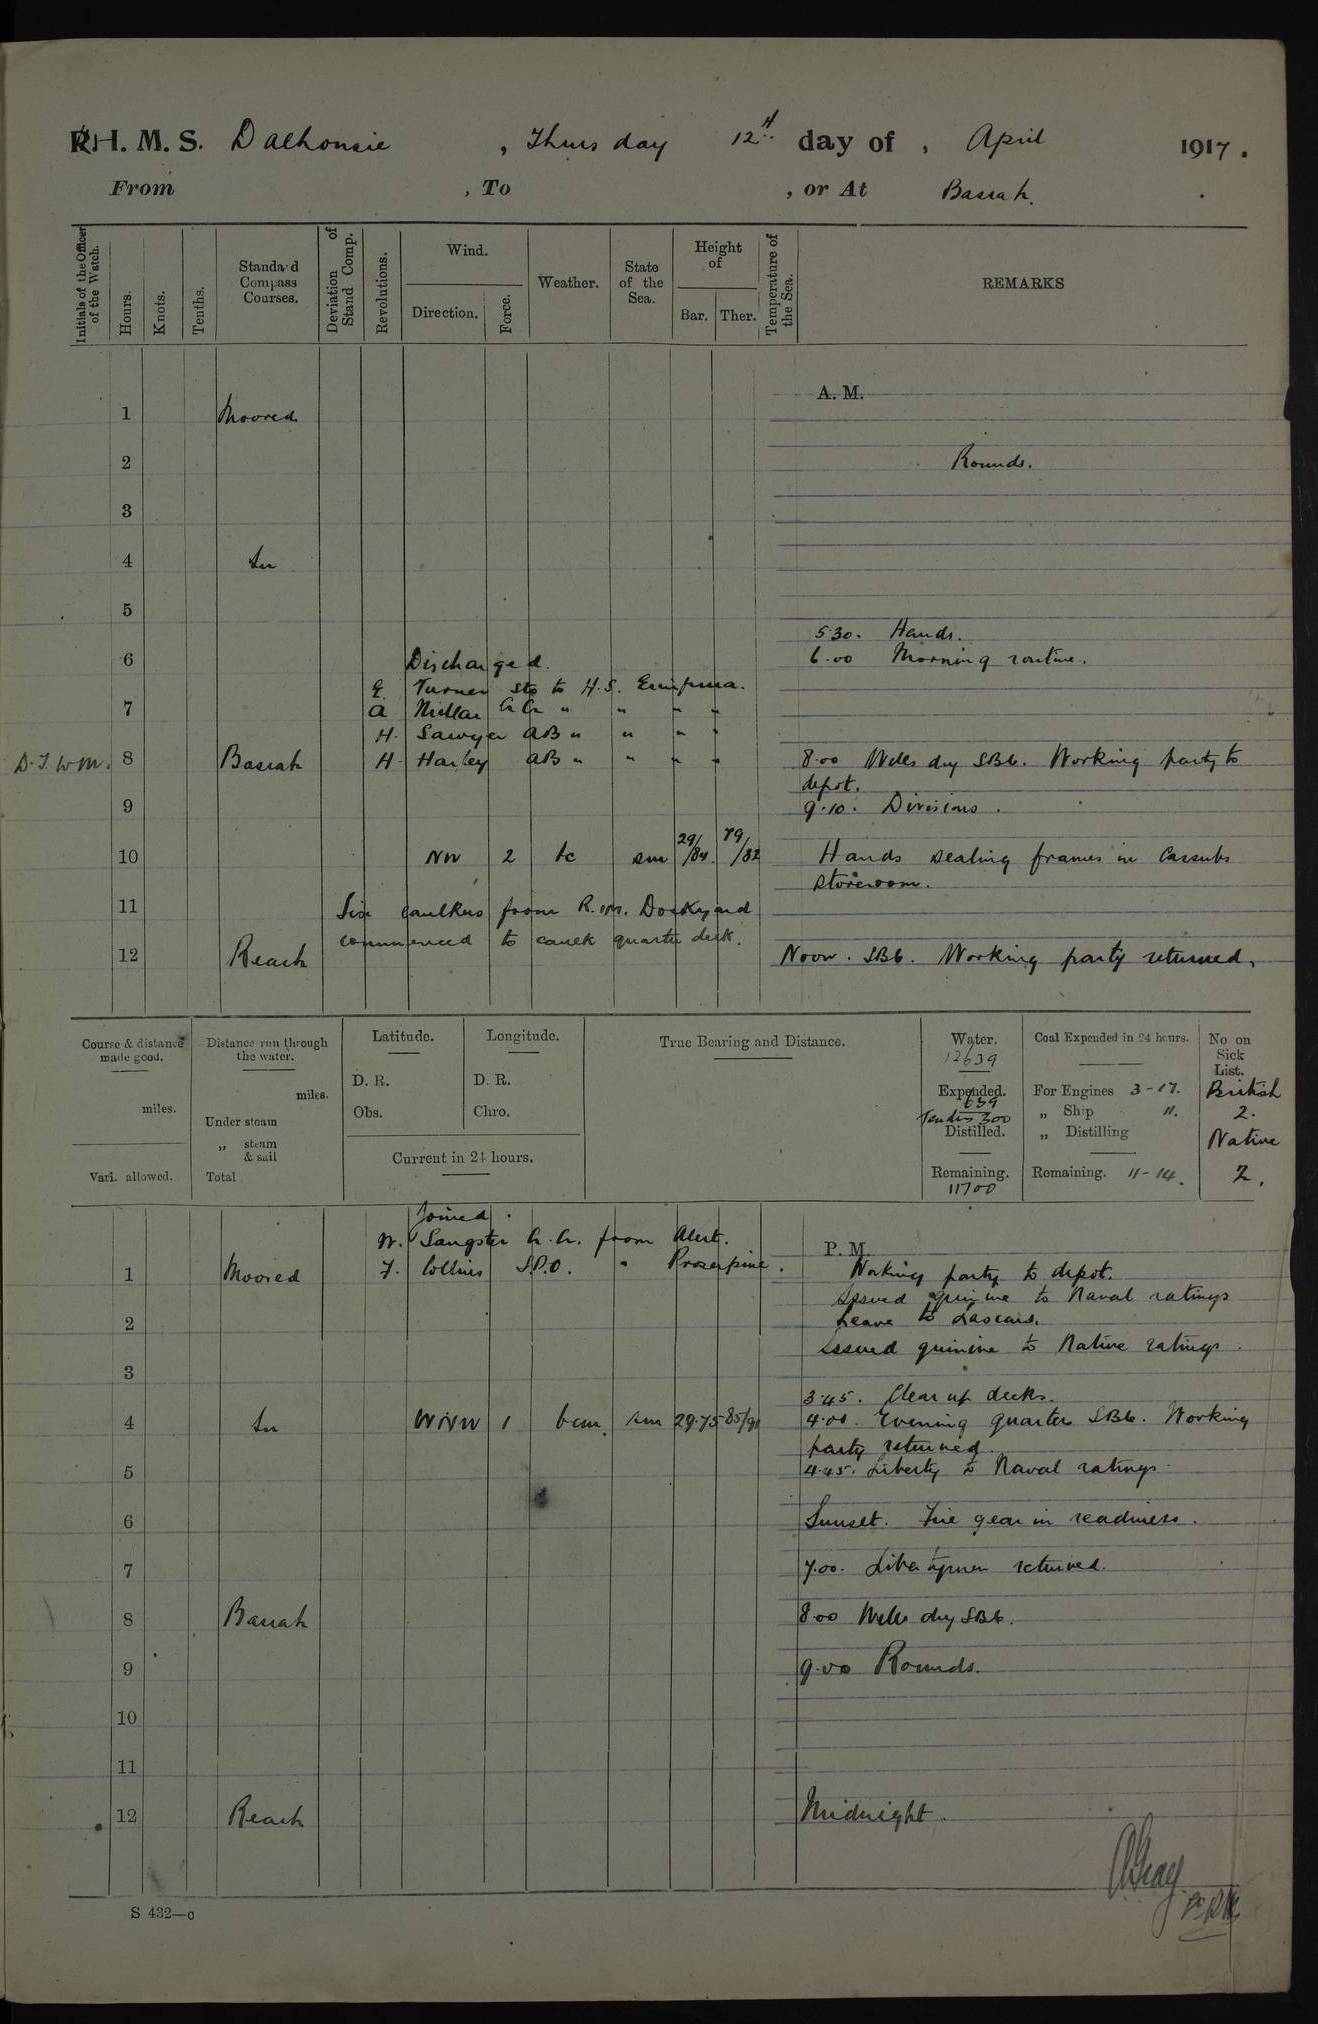 R.I.M.S. Dalhousie, Thursday 12th day of, April 1917.
From , To , or At Basrah.
Initials of the Officer of the Watch.
Hours.
Knots.
Tenths.
Standard Compass Courses.
Deviation of Stand Comp.
Revolutions.
Wind.
Direction.
Force.
Weather.
State of the Sea.
Height of
Bar. Ther.
Temperature of the Sea.
REMARKS
A. M.
1 Moored
2 Rounds.
3
4 In
5
5.30. Hands.
6 Discharged. 6.00 Morning routine.
E. Turner Sto to H.S.
7 A Millar " " " "
H. Sawyer AB " " " "
D.J.W.M. 8 Basrah H. Harley AB " " " " 8.00 Wells dry SB6. Working party to
depot.
9 9.10. Divisions.
10 NW 2 bc sm 29/84. 79/82 Hands sealing frames in
storeroom.
11 Six caulkers from R.I.M. Dockyard
commenced to caulk quarter deck.
12 Reach Noon. SB6. Working party returned.
Course & distance made good.
miles.
Vari. allowed.
Distance run through the water.
miles.
Under steam
„ steam & sail
Total
Latitude.
D. R.
Obs.
Longitude.
D. R.
Chro.
Current in 24 hours.
True Bearing and Distance.
Water.
12639
Expended.
639
Tenders 300
Distilled.
Remaining.
11700
Coal Expended in 24 hours.
For Engines 3-17.
„ Ship ".
„ Distilling
Remaining. 11-14.
No on Sick List.
British
2.
Native
2.
Joined.
W. Sangster from Alert.
P. M.
F. Collins S.P.O. " Proserpine.
1 Moored Working party to depot.
Issued quinine to Naval ratings
2 Leave to Lascars.
Issued quinine to Native ratings.
3
3.45. Clear up decks.
4 In WNW 1 bcm. sm 29.75 85/91 4.00. Evening quarters SB6. Working
party returned.
5 4.45. Liberty to Naval ratings.
6 Sunset. Fire gear in readiness.
7 7.00. Libertymen returned.
8 Basrah 8.00 Wells dry SB6.
9 9.00 Rounds.
10
11
12 Reach Midnight.
AGray
S 432—c